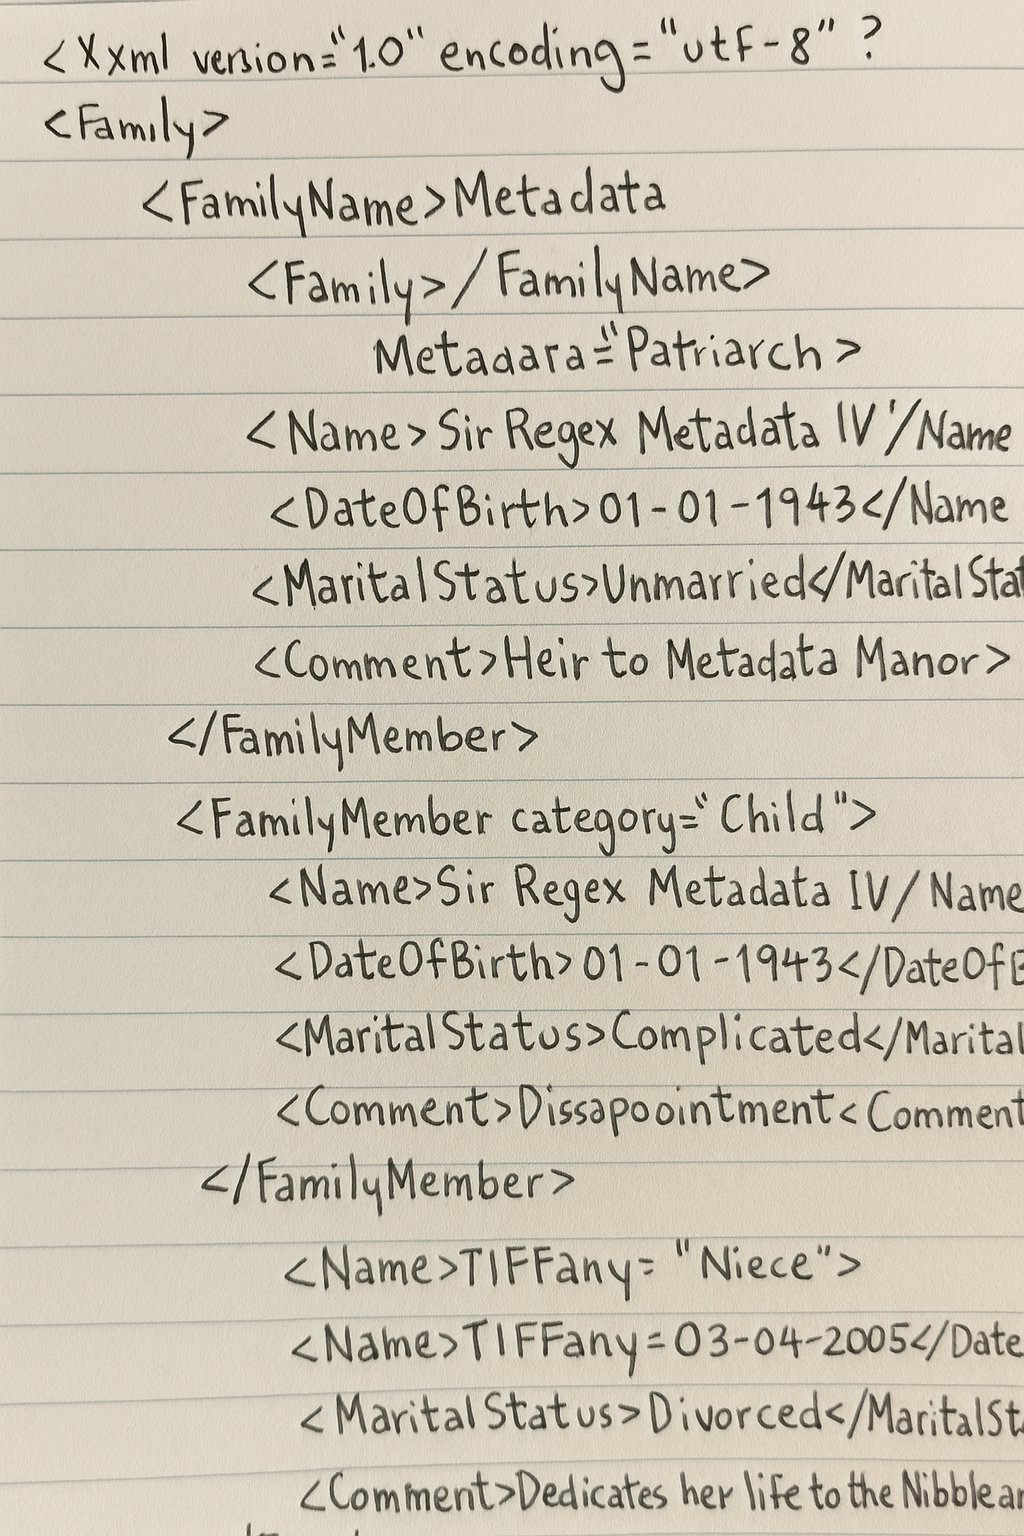 <Xxml version="1.0" encoding="utf-8" ?
<Family>
<FamilyName>Metadata
<Family>/FamilyName>
Metadara="Patriarch>
<Name>Sir Regex Metadata IV'/Name
<DateOfBirth>01-01-1943</Name
<MaritalStatus>Unmarried</MaritalStat
<Comment>Heir to Metadata Manor>
</FamilyMember>
<FamilyMember category="Child">
<Name>Sir Regex Metadata IV/Name
<DateOfBirth>01-01-1943</DateOfB
<MaritalStatus>Complicated</Marital
<Comment>Dissapoointment<Comment
</FamilyMember>
<Name>TIFFany= "Niece">
<Name>TIFFany=03-04-2005</Date
<MaritalStatus>Divorced</MaritalSt
<Comment>Dedicates her life to the Nibble ar